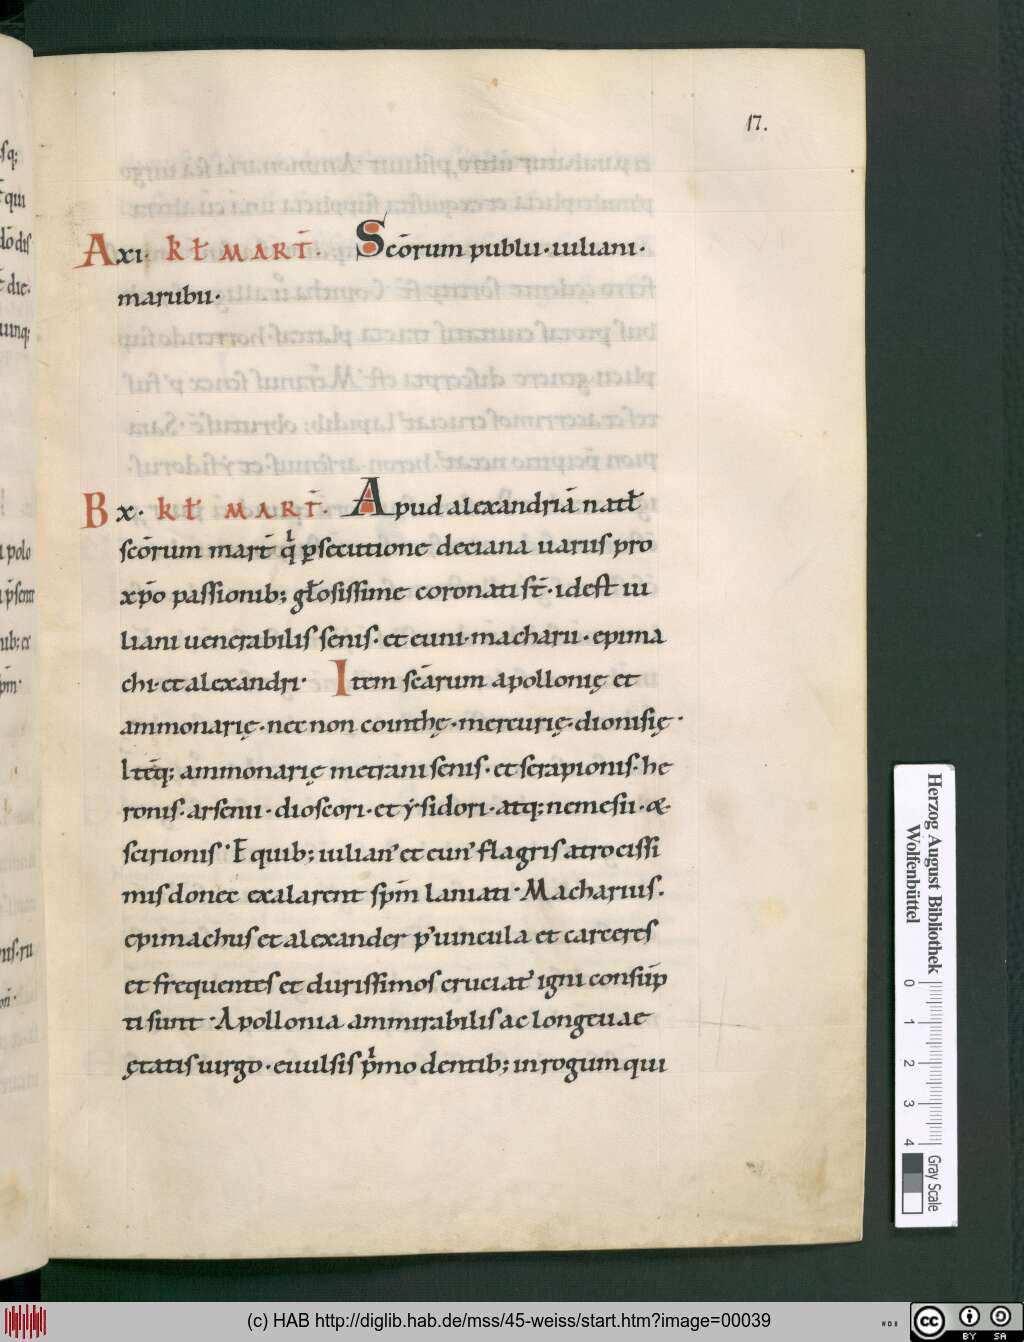 17.
A xi· kƚ MART̄. Scōrum publii·iuliani·
marubii·
B x· kƚ MART̄. Apud alexandriā natƚ
scōrum mart̄ q̇ ꝑsecutione deciana uariis pro
xp̄o passionib; gƚosissime coronati st̄·idest iu
liani uenerabilis senis· et euni·macharii·epima
chi·et alexandri· Item scārum apollonię et
ammonarię·nec non cointhę·mercurię·dionisię·
ƚteq; ammonarię metrani senis·et serapionis·he
ronis·arsenii·dioscori·et ẏsidori·atq; nemesii·&
scirionis·E quib; iulian᾽ et eun᾽ flagris atrocissi
mis donec exalarent sp̄m laniati·Macharius·
epimachus et alexander p᾽ uincula et carceres
et frequentes et durissimos cruciat᾽ igni consūp
ti sunt·Apollonia ammirabilis ac longeuae
ętatis uirgo·euulsis p̍mo dentib; in rogum qui
Herzog August Bibliothek
Wolfenbüttel
0 1 2 3 4
Gray Scale
(c) HAB http://diglib.hab.de/mss/45-weiss/start.htm?image=00039
cc BY SA